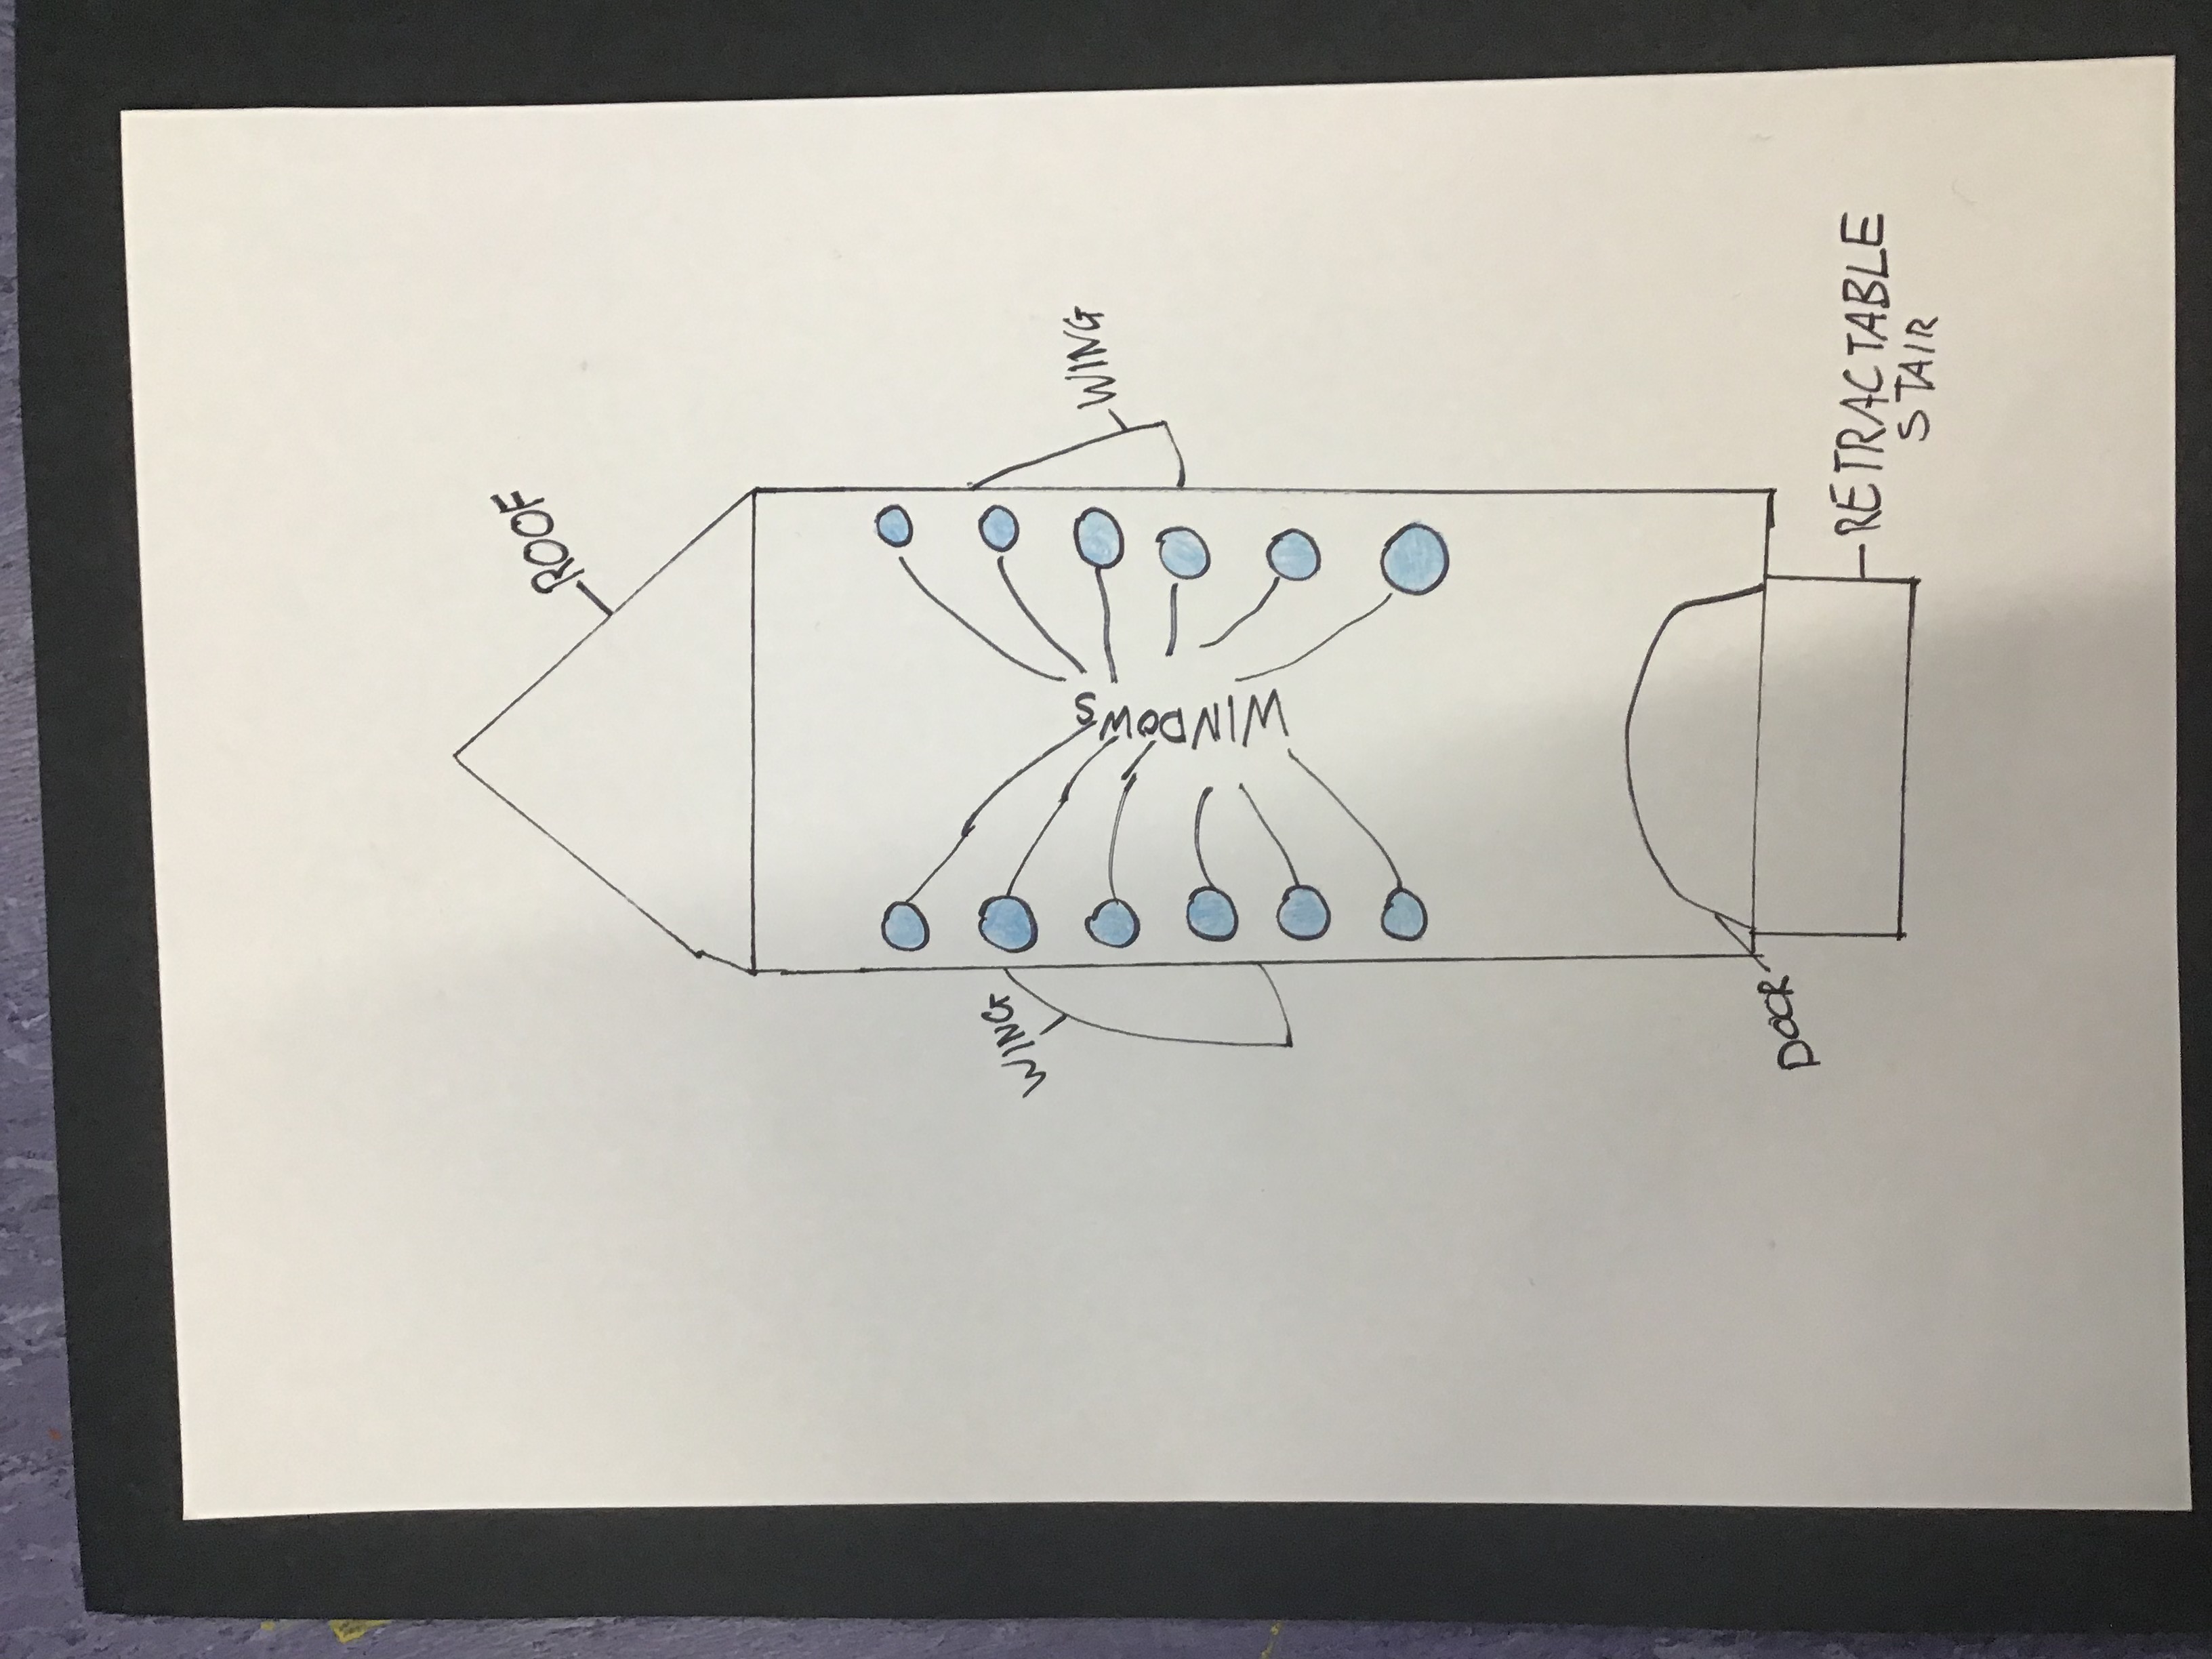 ROOF
WING
WINDOWS
WING
DOOR
RETRACTABLE
STAIR